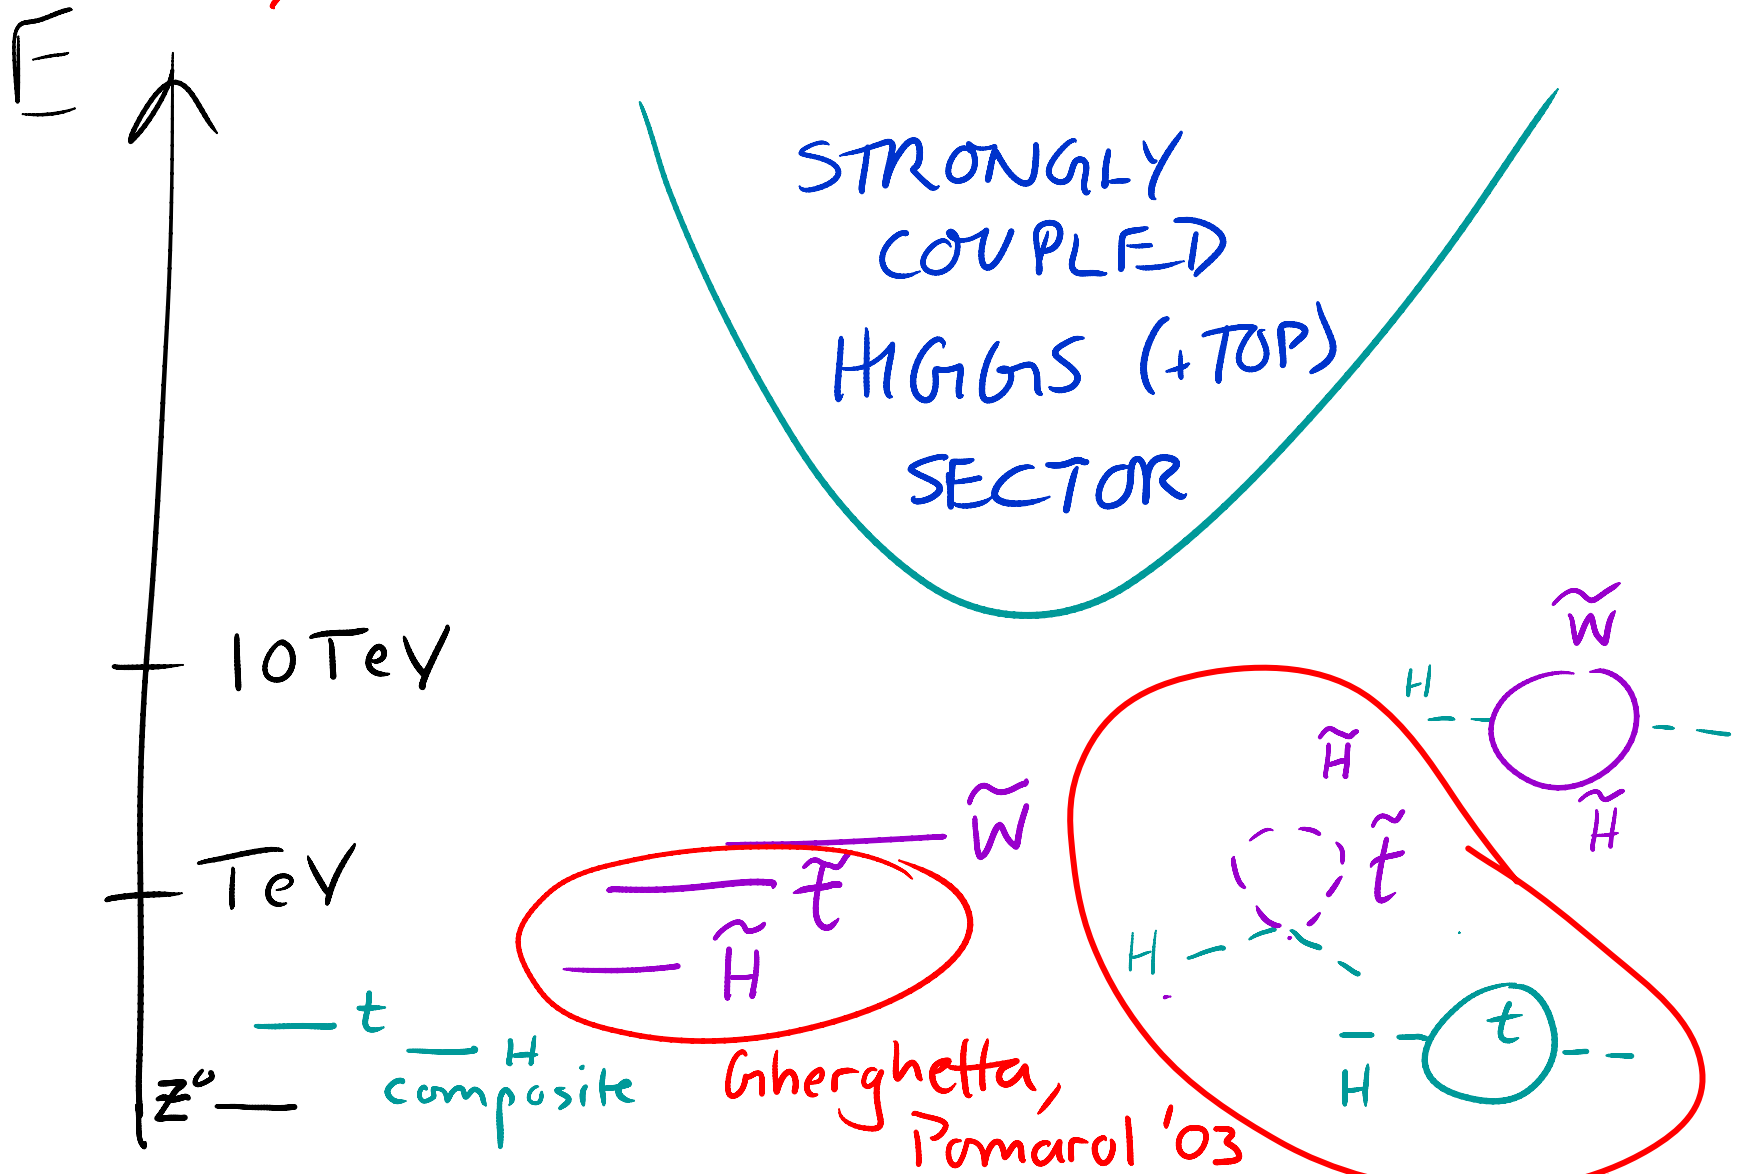 E
STRONGLY
COUPLED
HIGGS (+TOP)
SECTOR
10 TeV
W̃
H
H̃
H̃
TeV
W̃
t̃
t̃
H̃
H
t
t
H
composite
H
Z⁰
Gherghetta,
Pomarol '03